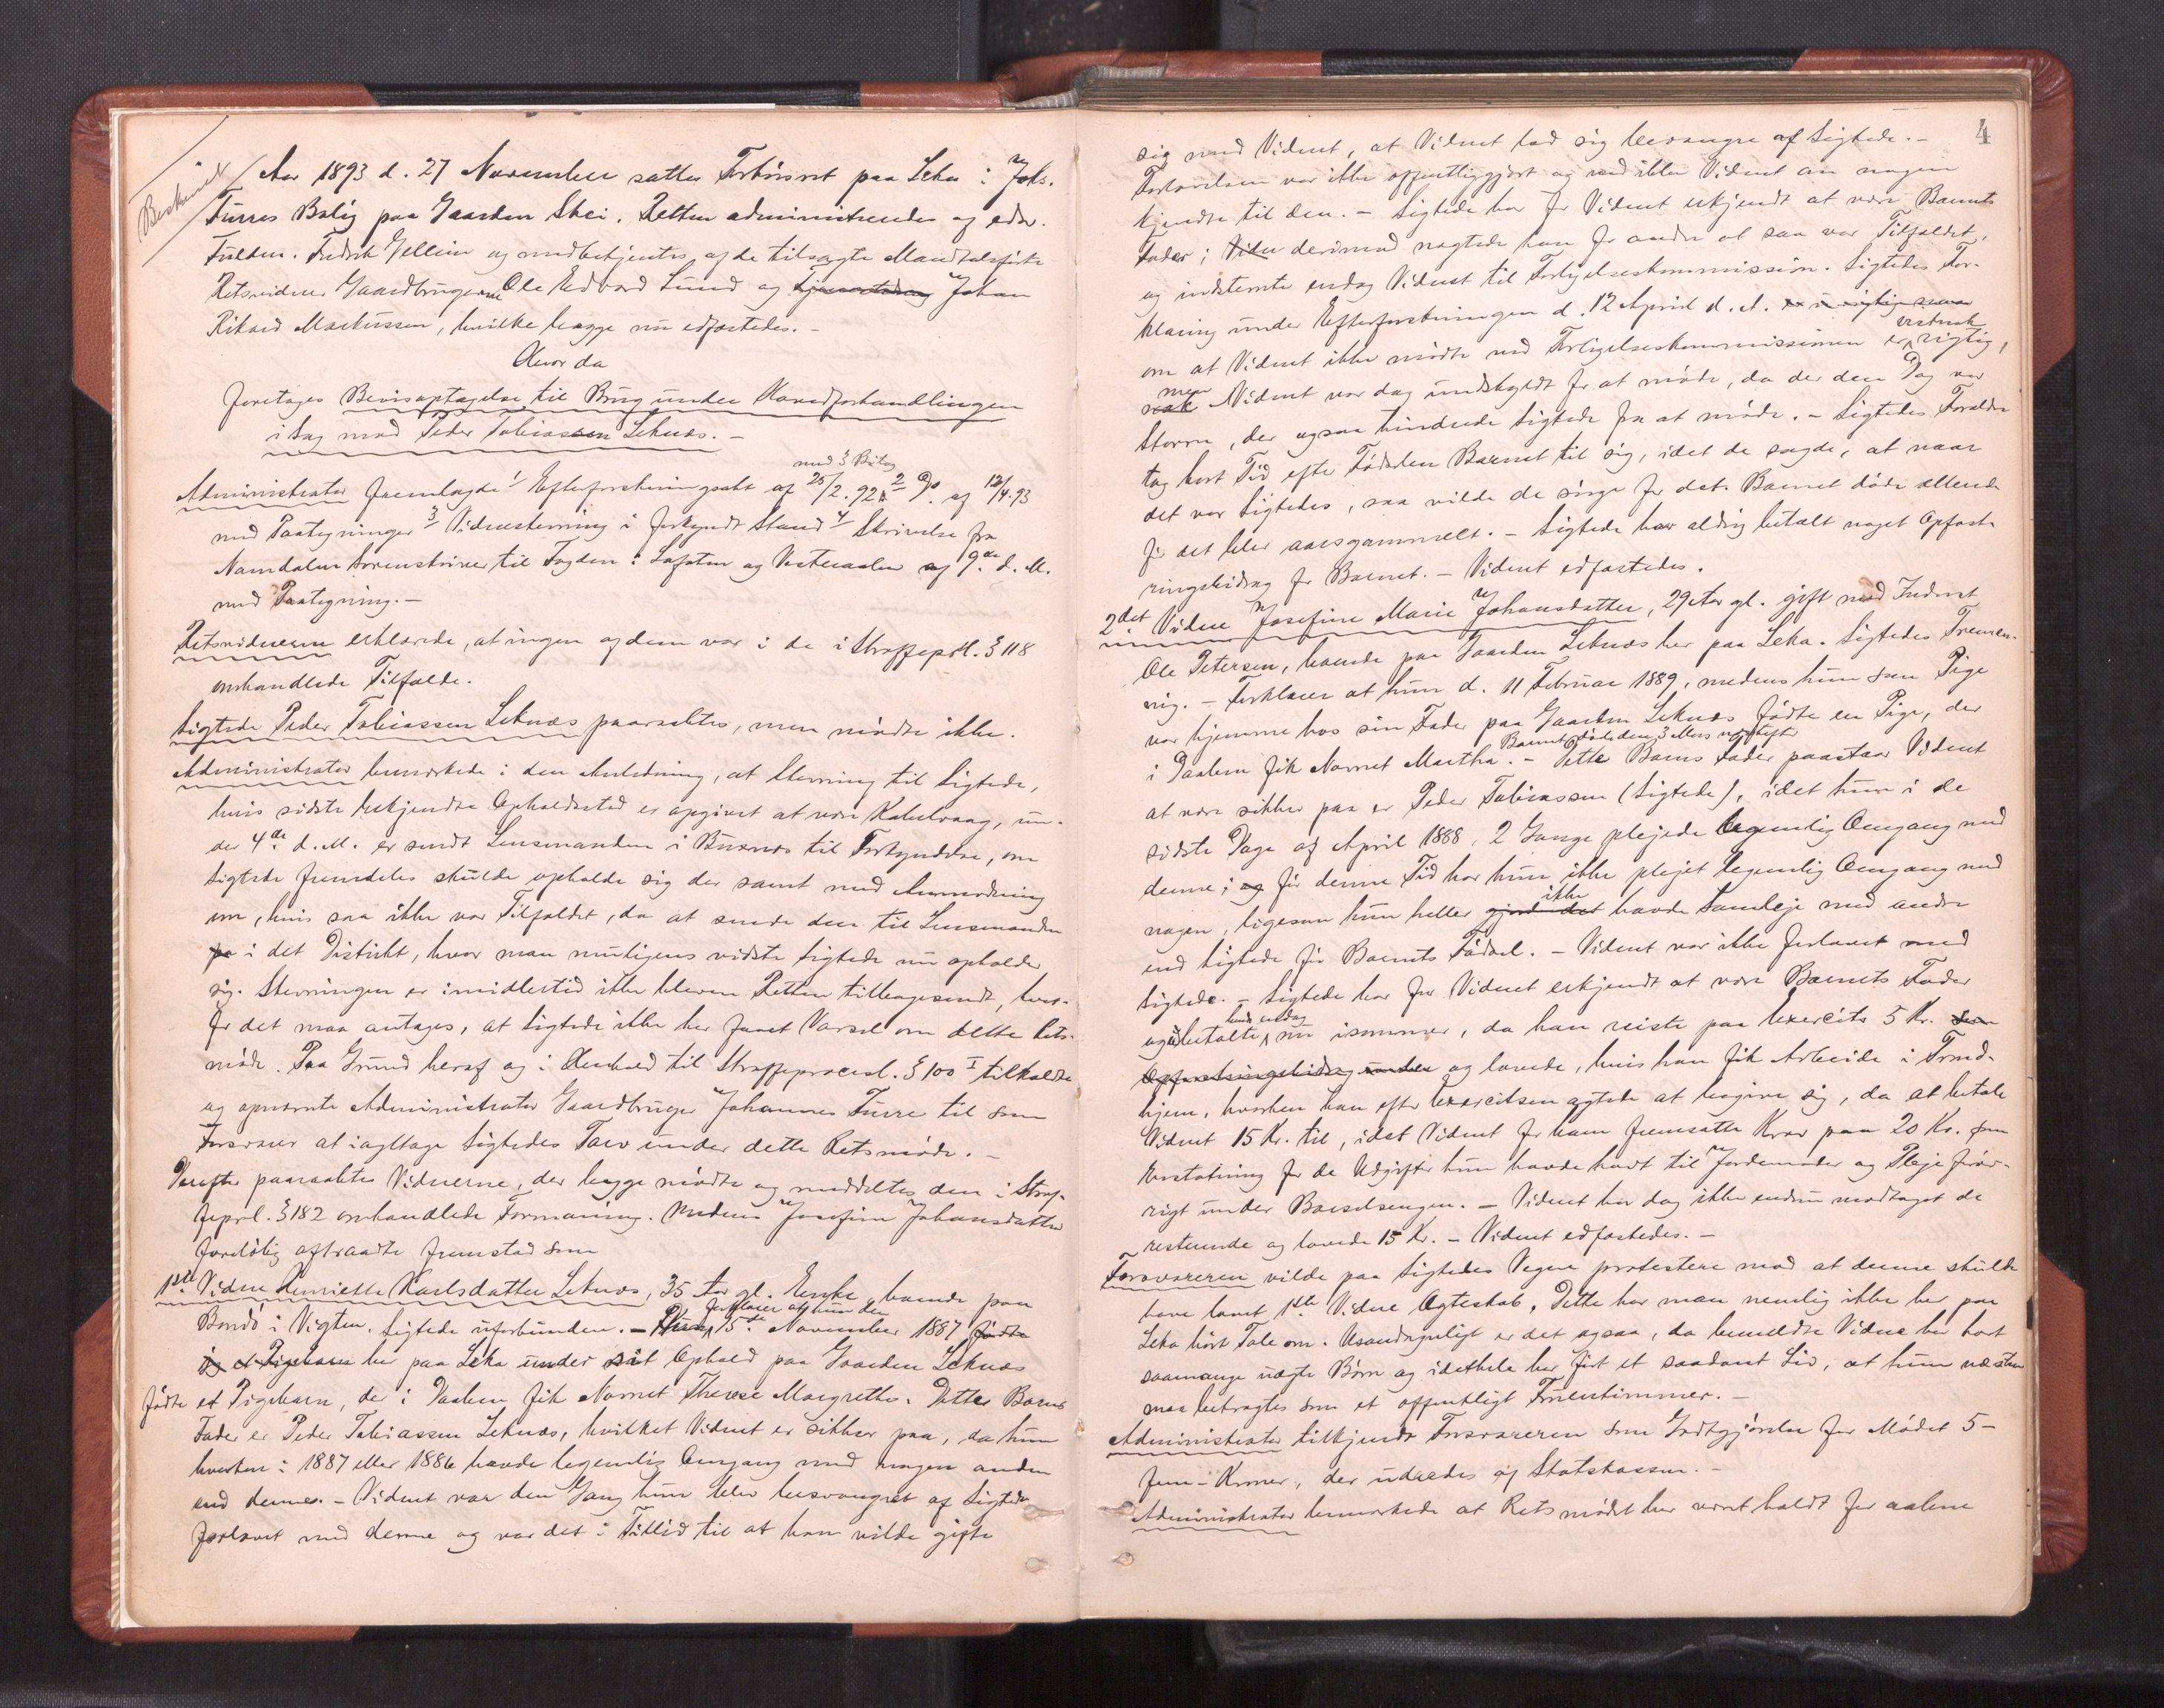 Beskrivet
Aar 1893 d. 27 November sattes Forhörsret paa Leka i Johs.
Furres Bolig paa Gaarden Skei. Retten administreredes af edsv.
Fuldm. Fredrik Gellein og medbetjentes af de tilsagte Mandtalsförte
Retsvidner Gaardbrugerne Ole Edvard Lund og Johan
Rikard Markussen, hvilke begge nu edfæstedes. –
Hvor da
foretages Bevisoptagelse til Brug under Hovedforhandlingen
i Sag mod Peder Tobiassen Leknes. –
med 3 Bilag
Administrator fremlagde 1/ Efterforskningsakt af 25/2. 92 2/ Do. af 12/4.93
med Paategninger 3/ Vidnestevning i forkyndt Stand 4/ Skrivelse fra
Namdalens Sorenskriver til Fogden i Lofoten og Vesteraalen af 9de d. M.
med Paategning. –
Retsvidnerne erklærede, at ingen af dem var i de i Straffeprl. § 118
omhandlede Tilfælde.
Sigtede Peder Tobiassen Leknes paaraabtes, men mödte ikke.
Administrator bemærkede i den Anledning, at Stevning til Sigtede,
hvis sidste bekjendte Opholdssted er opgivet at være Kabelvaag, un-
der 4de d. M. er sendt Lensmanden i Buxnes til Forkyndelse, om
Sigtede fremdeles skulde opholde sig der samt med Anmodning
om, hvis saa ikke var Tilfældet, da at sende den til Lensmanden
i det Distrikt, hvor man muligens vidste Sigtede nu opholder
sig. Stevningen er imidlertid ikke bleven Retten tilbagesendt, hvor-
for det maa antages, at Sigtede ikke har faaet Varsel om dette Rets-
möde. Paa Grund heraf og i Henhold til Straffeprocesl. § 100 I tilkaldte
og opnævnte Administrator Gaardbruger Johannes Furre til som
Forsvarer at iagttage Sigtedes Tarv under dette Retsmöde. –
Derefter paaraabtes Vidnerne, der begge mödte og meddeltes den i Straf-
feprl. § 182 omhandlede Formaning. Medens Josefine Johansdatter
foreløbig aftraadte fremstod som
1ste Vidne Henriette Karlsdatter Leknes, 35 Aar gl. Enke, boende paa
Bondö i Vigten. Sigtede uforbunden. – forklarer at hun den 15de November 1887 födte
her paa Leka under sit Ophold paa Gaarden Leknes
födte et Pigebarn, der i Daaben fik Navnet Therese Margrethe. Dette Barns
Fader er Peder Tobiassen Leknes, hvilket Vidnet er sikker paa, da hun
hverken i 1887 eller 1886 havde legemlig Omgang med nogen anden
end denne. – Vidnet var den Gang hun blev besvangret af Sigtede
forlovet med denne og var det i Tillid til at han vilde gifte
4
sig med Vidnet, at Vidnet lod sig besvangre af Sigtede. –
Forlovelsen var ikke offentliggjort og ved ikke Vidnet om nogen
kjendte til den. – Sigtede har for Vidnet erkjendt at være Barnets
Fader; derimod negtede han for andre at saa var Tilfældet,
og indstevnte endog Vidnet til Forligelseskommission. Sigtedes For-
klaring under Efterforskningen d. 12 April d. A.
om at Vidnet ikke mödte ved Forligelseskommissionen er rigtig,
men Vidnet var dog undskyldt for at møde, da der den Dag var
Storm, der ogsaa hindrede Sigtede fra at möde. – Sigtedes Forældre
tog kort Tid efter Födselen Barnet til sig, idet de sagde, at naar
det var Sigtedes, saa vilde de sörge for det. Barnet döde allerede
för det blev aarsgammelt. – Sigtede har aldrig betalt noget Opfost-
ringsbidrag for Barnet. – Vidnet edfæstedes.
2det Vidne Josefine Marie Johansdatter, 29 Aar gl. gift med Inderst
Ole Petersen, boende paa Gaarden Leknes her paa Leka. Sigtedes Tremen-
ning. – Forklarer at hun d. 11 Februar 1889, medens hun som Pige
var hjemme hos sin Fader paa Gaarden Leknes födte en Pige, der
i Daaben fik Navnet Martha. – Dette Barns Fader paastaar Vidnet
at være sikker paa er Peder Tobiassen (Sigtede), idet hun i de
sidste Dage af April 1888, 2 Gange plejede legemlig Omgang med
denne; för denne Tid har hun ikke plejet legemlig Omgang med
nogen, ligesom hun heller ikke havde Samleje med andre
end Sigtede för Barnets Födsel. – Vidnet var ikke forlovet med
Sigtede. – Sigtede har for Vidnet erkjendt at være Barnets Fader
og betalte hende endog nu isommer, da han reiste paa Exercits 5 Kr.
og lovede, hvis han fik Arbeide i Trond-
hjem, hvorhen han efter Exercitsen agtede at begive sig, da at betale
Vidnet 15 Kr. til, idet Vidnet for ham fremsatte Krav paa 20 Kr. som
Erstatning for de Udgifter hun havde havt til Jordemoder og Pleje forøv-
rigt under Barselsengen. – Vidnet har dog ikke endnu modtaget de
resterende og lovede 15 Kr. – Vidnet edfæstedes. –
Forsvareren vilde paa Sigtedes Vegne protestere mod at denne skulde
have lovet 1ste Vidne Ægteskab. Dette har man nemlig ikke her paa
Leka hört Tale om. Usandsynligt er det ogsaa, da bemeldte Vidne har havt
saamange uægte Børn og idethele har fört et saadant Liv, at hun næsten
maa betragtes som et offentligt Fruentimmer. –
Administrator tilkjendte Forsvareren som Godtgjörelse for Mödet 5 –
fem – Kroner, der udredes af Statskassen. –
Administrator bemærkede at Retsmödet har været holdt for aabne